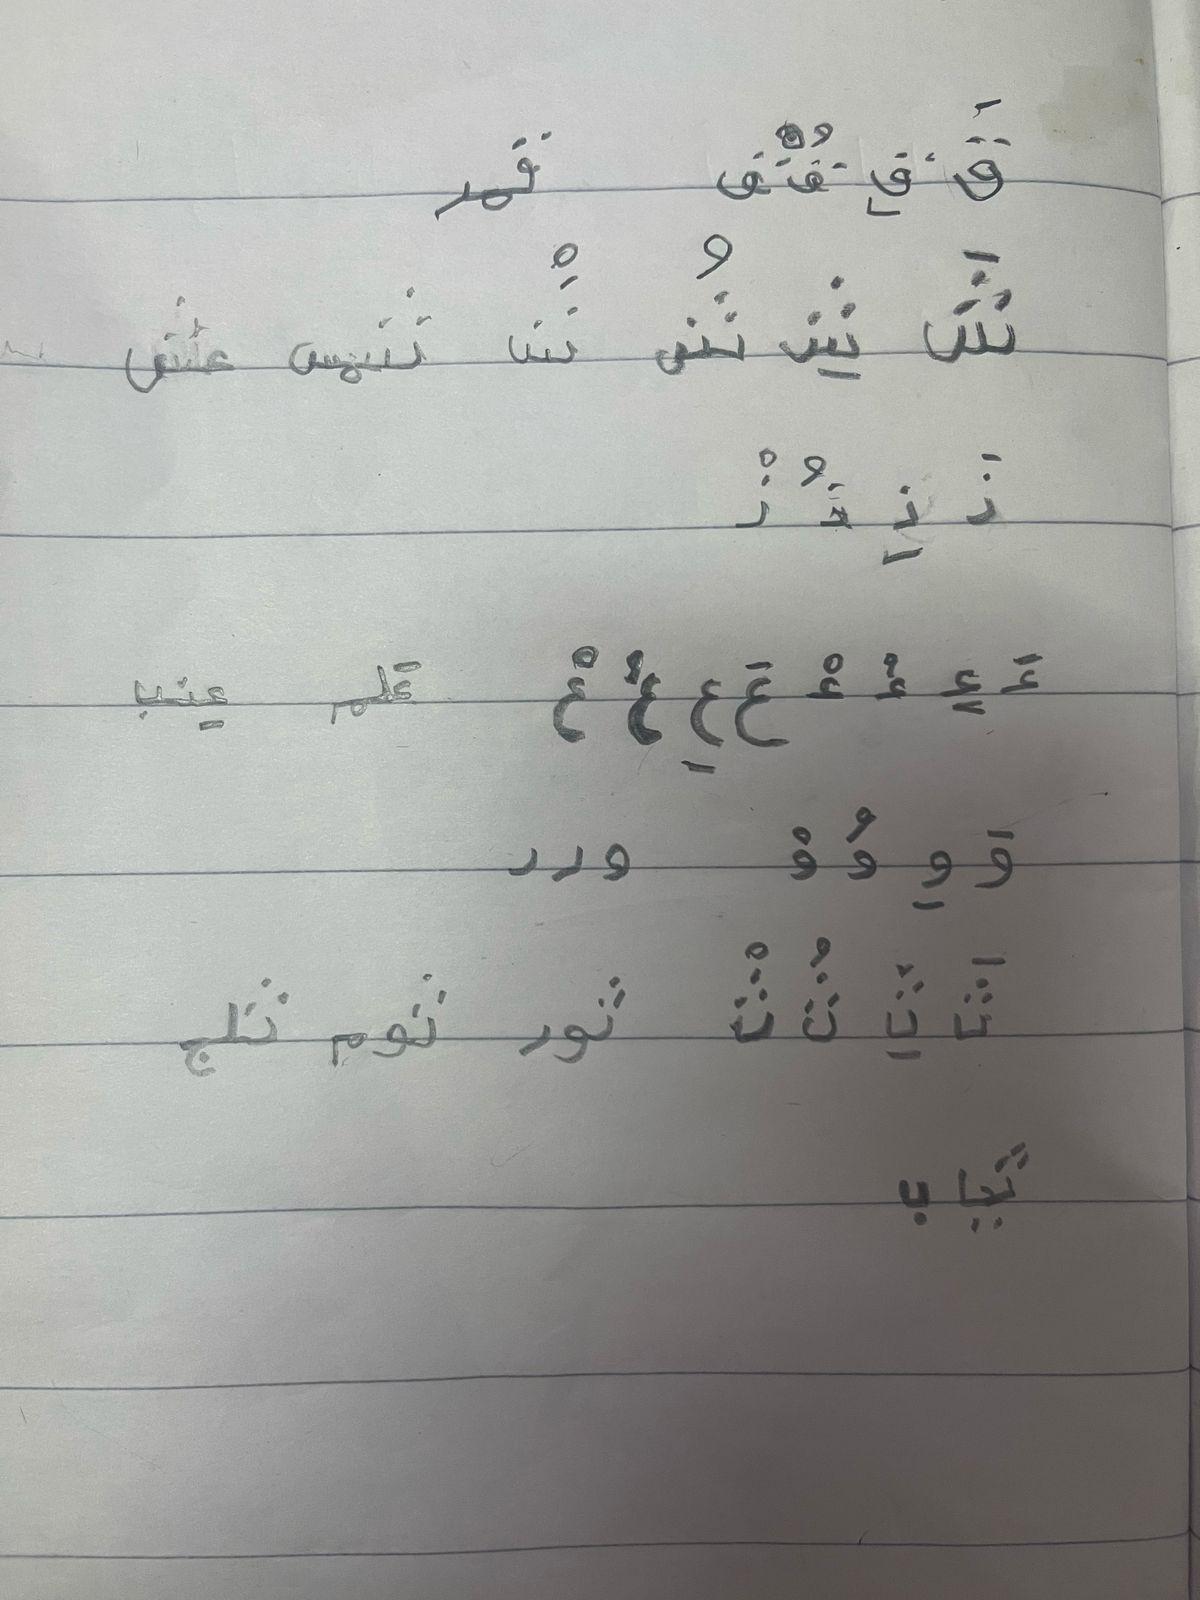 قَ قِ قُ قْ قمر
شَ شِ شُ شْ شمس عش
ذَ ذِ ذُ ذْ
عَ عِ عُ عْ عَ عِ عُ عْ عَلم عِنب
وَ وِ وُ وْ ورد
ثَ ثِ ثُ ثْ ثور ثوم ثلج
ثياب